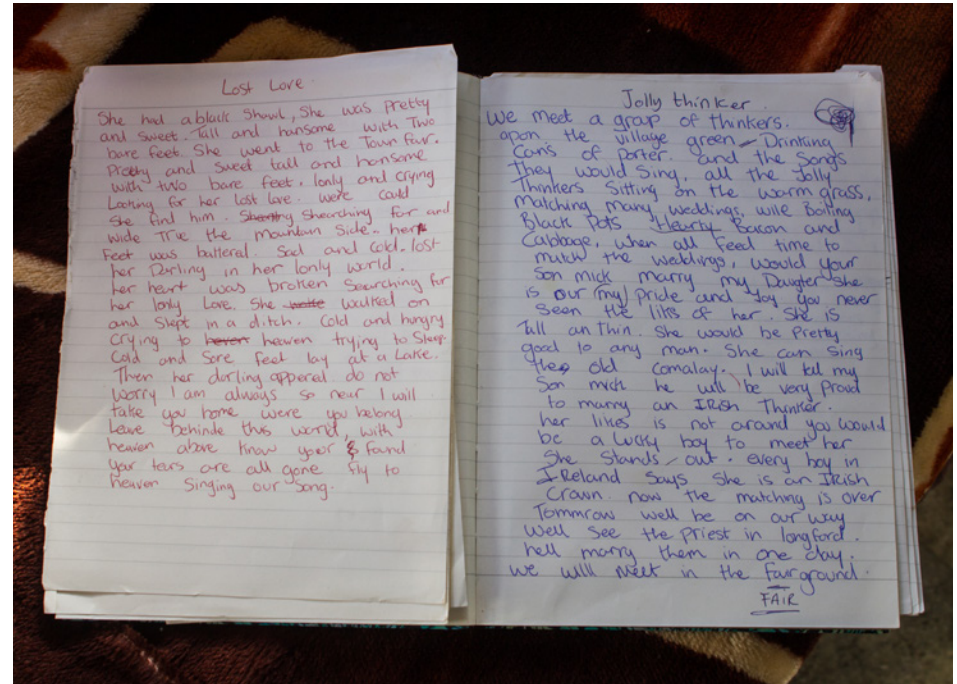 Lost Love.
She had a black Shawl, She was Pretty
and sweet. Tall and hansome with Two
bare feet. She went to the Town fair.
Pretty and sweet tall and hansome
with two bare feet. lonly and crying
Looking for her lost love. were could
She find him. Shearching far and
wide True the mountain Side. her
feet was battered. Sad and cold. lost
her Darling in her lonly world.
her heart was broken Searching for
her lonly Love. She walked on
and Slept in a ditch. Cold and hungry
crying to heaven trying to Sleep.
Cold and Sore feet lay at a Lake.
Then her darling appered. do not
worry I am always so near I will
take you home were you belong
Leave behinde this world, with
heaven above know your found
your tears are all gone fly to
heaven Singing our Song.
Jolly thinker.
We meet a group of thinkers.
apon the village green - Drinking
Cans of porter. and the Songs
they would Sing, all the Jolly
Thinkers Sitting on the warm grass,
matching many weddings, wile Boiling
Black Pots Hearty Bacon and
Cabbage, when all feed time to
match the weddings, would your
Son mick marry my Daugter She
is our (my) Pride and Joy you never
Seen the liks of her. She is
Tall an Thin. She would be Pretty
good to any man. She can Sing
the old comalay. I will tell my
Son mick he will be very Proud
to marry an IRish Thinker.
her likes is not around you would
be a Lucky boy to meet her
She Stands out. every boy in
IReland Says She is an IRish
Crawn. now the matching is over
Tommrow well be on our way
well See the Priest in longford.
hell marry them in one day.
we will meet in the fairground.
FAIR